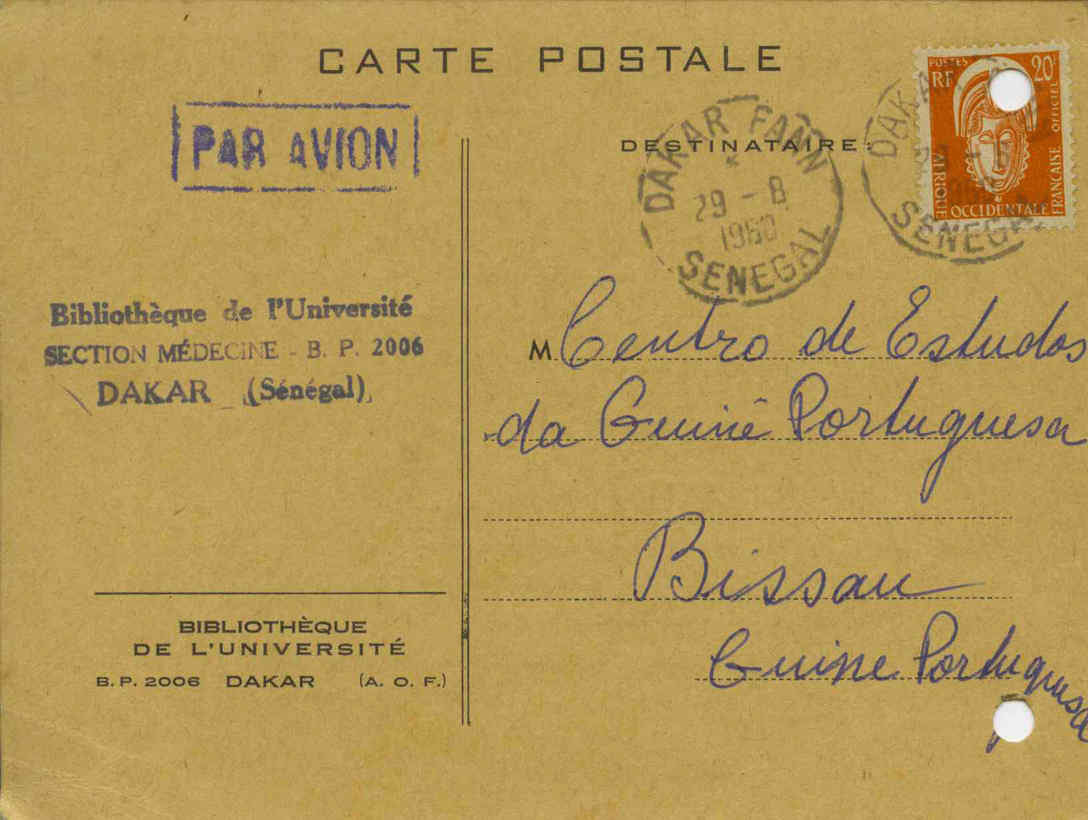 CARTE POSTALE
PAR AVION
DESTINATAIRE:
DAKAR FANN
29 - 8
1960
SENEGAL
DAKAR
SENEGAL
POSTES
RF
20F
OFFICIEL
AFRIQUE
OCCIDENTALE
FRANÇAISE
Bibliothèque de l'Université
SECTION MÉDECINE - B. P. 2006
DAKAR (Sénégal)
M. Centro de Estudos
da Guiné Portuguesa
Bissau
Guine Portuguesa
BIBLIOTHÈQUE
DE L'UNIVERSITÉ
B. P. 2006 DAKAR (A. O. F.)